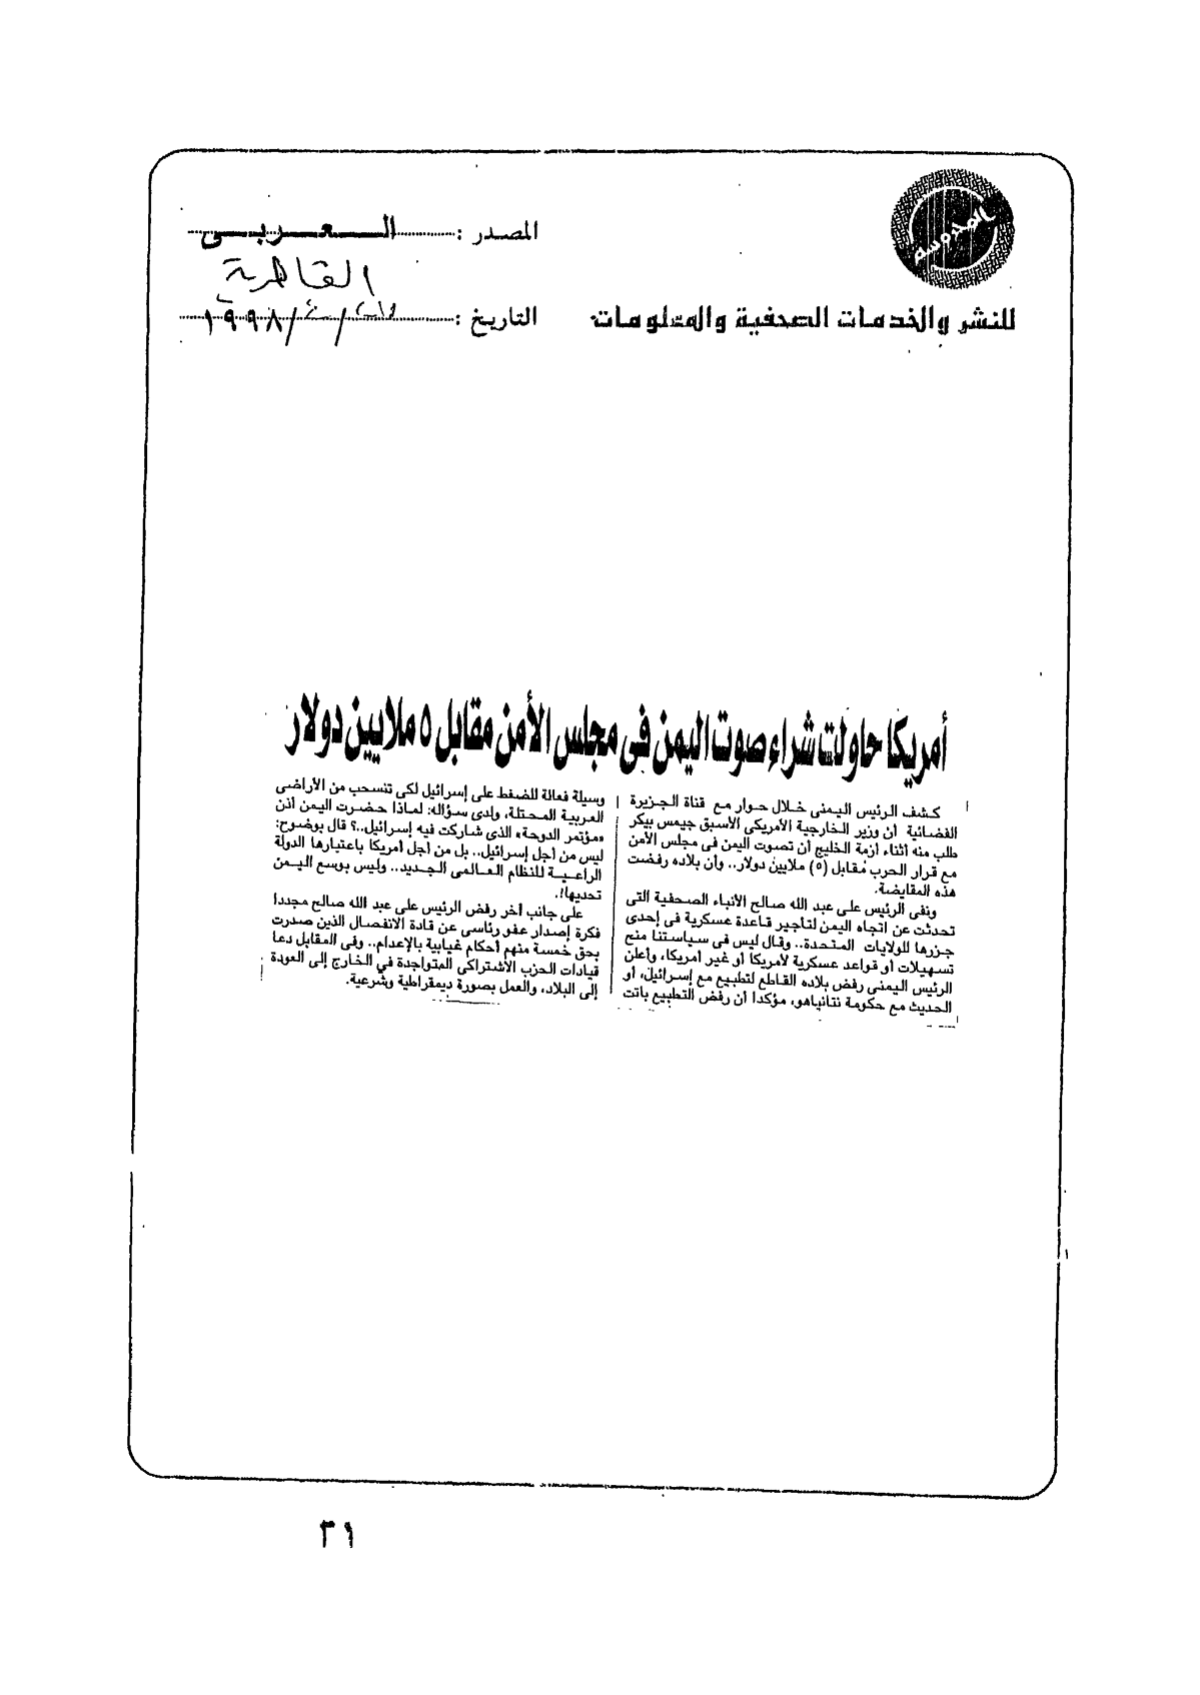 المصدر : العربى
القاهرية
للنشر والخدمات الصحفية والمعلومات
التاريخ : / / ١٩٩٨
أمريكا حاولت شراء صوت اليمن فى مجلس الأمن مقابل ٥ ملايين دولار
كشف الرئيس اليمنى خلال حوار مع قناة الجزيرة
الفضائية أن وزير الخارجية الأمريكى الأسبق جيمس بيكر
طلب منه أثناء أزمة الخليج أن تصوت اليمن فى مجلس الأمن
مع قرار الحرب مقابل (٥) ملايين دولار.. وأن بلاده رفضت
هذه المقايضة.
ونفى الرئيس على عبد الله صالح الأنباء الصحفية التى
تحدثت عن اتجاه اليمن لتأجير قاعدة عسكرية فى إحدى
جزرها للولايات المتحدة.. وقال ليس فى سياستنا منح
تسهيلات أو قواعد عسكرية لأمريكا أو غير أمريكا، وأعلن
الرئيس اليمنى رفض بلاده القاطع لتطبيع مع إسرائيل، أو
الحديث مع حكومة نتانياهو، مؤكدا أن رفض التطبيع بات
وسيلة فعالة للضغط على إسرائيل لكى تنسحب من الأراضى
العربية المحتلة، ولدى سؤاله: لماذا حضرت اليمن اذن
«مؤتمر الدوحة» الذى شاركت فيه إسرائيل..؟ قال بوضوح:
ليس من أجل إسرائيل.. بل من أجل أمريكا باعتبارها الدولة
الراعية للنظام العالمى الجديد.. وليس بوسع اليمن
تحديها!.
على جانب آخر رفض الرئيس على عبد الله صالح مجددا
فكرة إصدار عفو رئاسى عن قادة الانفصال الذين صدرت
بحق خمسة منهم أحكام غيابية بالإعدام.. وفى المقابل دعا
قيادات الحزب الأشتراكى المتواجدة في الخارج إلى العودة
إلى البلاد، والعمل بصورة ديمقراطية وشرعية.
٣١